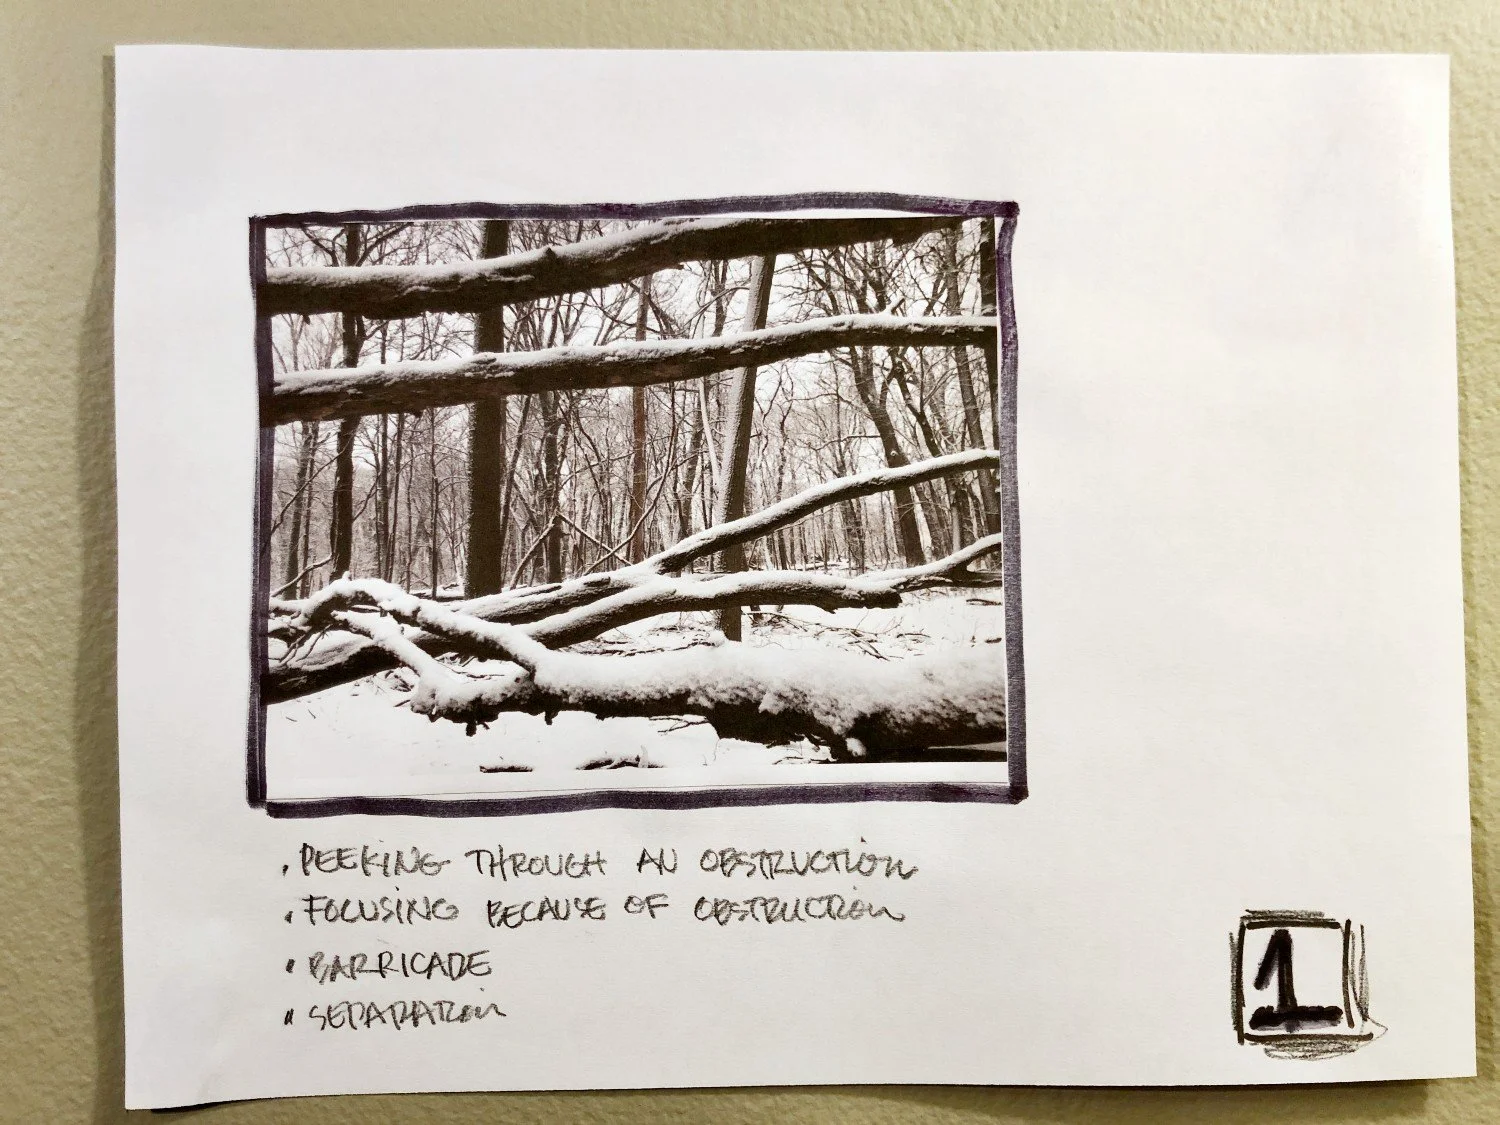 . PEEKING THROUGH AN OBSTRUCTION
. FOCUSING BECAUSE OF OBSTRUCTION
. BARRICADE
. SEPARATION
1